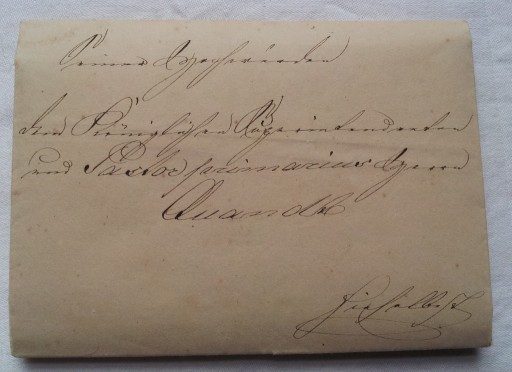 Seiner Hochwürden
dem Königlichen Superintendenten
und Pastor primarius Herrn
Quandt
hieselbst